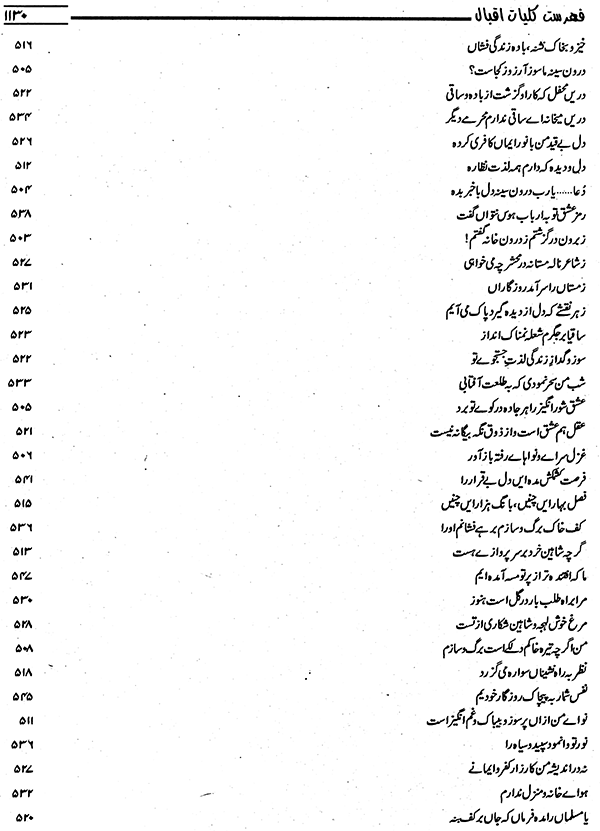 فہرست کلیات اقبال ۱۱۳۰
خیز و بخاک تشنہ، بادہ زندگی فشاں ۵۱۶
درون سینہ ما سوز آرزو ز کجاست؟ ۵۰۵
دریں محفل کہ کار او گزشت از بادہ و ساقی ۵۲۲
دریں میخانہ اے ساقی ندارم محرمے دیگر ۵۳۴
دل بے قید من با نور ایماں کافری کردہ ۵۲۶
دل و دیدہ کہ دارم ہمہ لذت نظارہ ۵۱۲
دُعا...... یارب درون سینہ دل باخبر بدہ ۵۰۴
رمز عشق تو بہ ارباب ہوس نتواں گفت ۵۳۸
ز برون در گزشتم ز درون خانہ گفتم! ۵۰۳
ز شاعر نالہ مستانہ در محشر چہ می خواہی ۵۲۷
زمستاں را سر آمد روزگاراں ۵۳۱
ز ہر نقشے کہ دل از دیدہ گیرد پاک می آیم ۵۲۵
ساقیا بر جگرم شعلہ نمناک انداز ۵۲۳
سوز و گداز زندگی لذت جستجوے تو ۵۲۲
شب من سحر نمودی کہ بہ طلعت آفتابی ۵۳۳
عشق شور انگیز را ہر جادہ در کوے تو برد ۵۰۵
عقل ہم عشق است و از ذوق نگہ بیگانہ نیست ۵۲۱
غزل سراے و نواہاے رفتہ باز آور ۵۰۶
فرصت کشمکش مدہ ایں دل بے قرار را ۵۴۱
فصل بہار ایں چنیں، بانگ ہزار ایں چنیں ۵۱۵
کف خاک برگ و سازم بر ہے فشانم او را ۵۳۶
گرچہ شاہین خرد بر سر پروازے ہست ۵۱۳
ما کہ افتندہ تر از پرتو مہ آمدہ ایم ۵۴۷
مرا براہ طلب بار در گل است ہنوز ۵۳۰
مرغ خوش لہجہ و شاہین شکاری از تست ۵۲۸
من اگرچہ تیرہ خاکم دلکے است برگ و سازم ۵۰۸
نظر بہ راہ نشیناں سوارہ می گزرد ۵۱۸
نفس شمار بہ پیچاک روزگار خودیم ۵۴۵
نواے من ازاں پرسوز و بیباک و غم انگیز است ۵۱۱
نور تو وانمود سپید و سیاہ را ۵۳۶
نہ در اندیشہ من کارزار کفر و ایمانے ۵۲۷
ہواے خانہ و منزل ندارم ۵۳۲
یا مسلماں را مدہ فرماں کہ جاں بر کف بنہ ۵۲۰